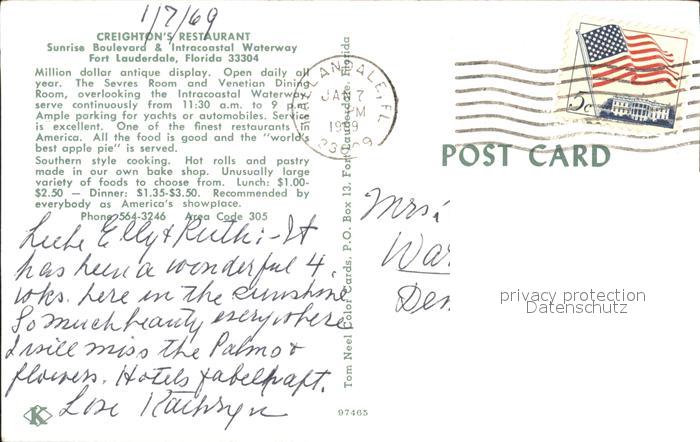 1/7/69
CREIGHTON'S RESTAURANT
Sunrise Boulevard & Intracoastal Waterway
Fort Lauderdale, Florida 33304
Million dollar antique display. Open daily all
year. The Sevres Room and Venetian Dining
Room, overlooking the Intracoastal Waterway,
serve continuously from 11:30 a.m. to 9 p.m.
Ample parking for yachts or automobiles. Service
is excellent. One of the finest restaurants in
America. All the food is good and the "world's
best apple pie" is served.
Southern style cooking. Hot rolls and pastry
made in our own bake shop. Unusually large
variety of foods to choose from. Lunch: $1.00-
$2.50 — Dinner: $1.35-$3.50. Recommended by
everybody as America's showplace.
Phone 564-3246 Area Code 305
Liebe Elly & Ruth:- It
has been a wonderful 4.
wks. here in the sunshine
So much beauty everywhere
I will miss the Palms &
flowers. Hotels & apt.
Love Kathryn
K
Tom Neel Color Cards, P.O. Box 13, Fort Lauderdale, Florida
97465
HALLANDALE, FL.
JAN 7
PM
1969
33009
5c
POST CARD
Mrs
War
Den
privacy protection
Datenschutz